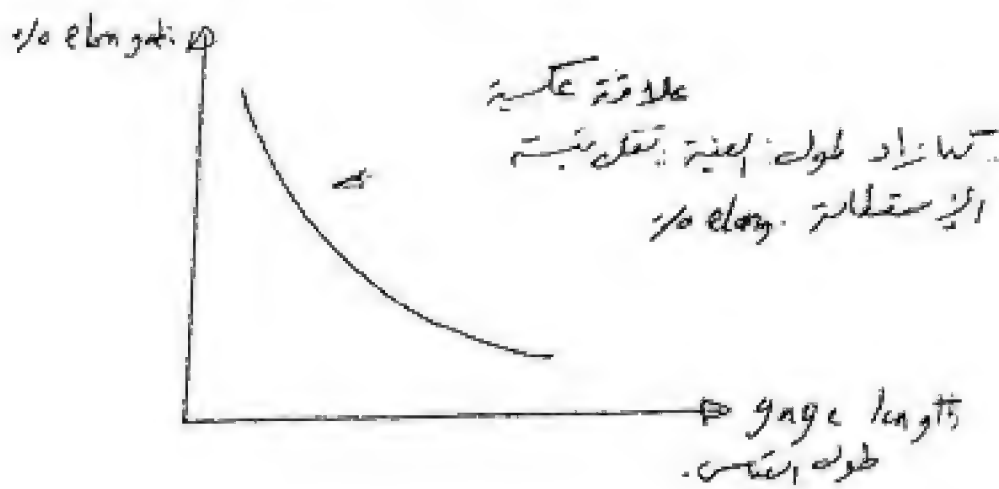 % elongati.
علاقة عكسية
كلما زاد طول العينة تقل نسبة
الإستطالة % elong.
gage length
طول القياس.